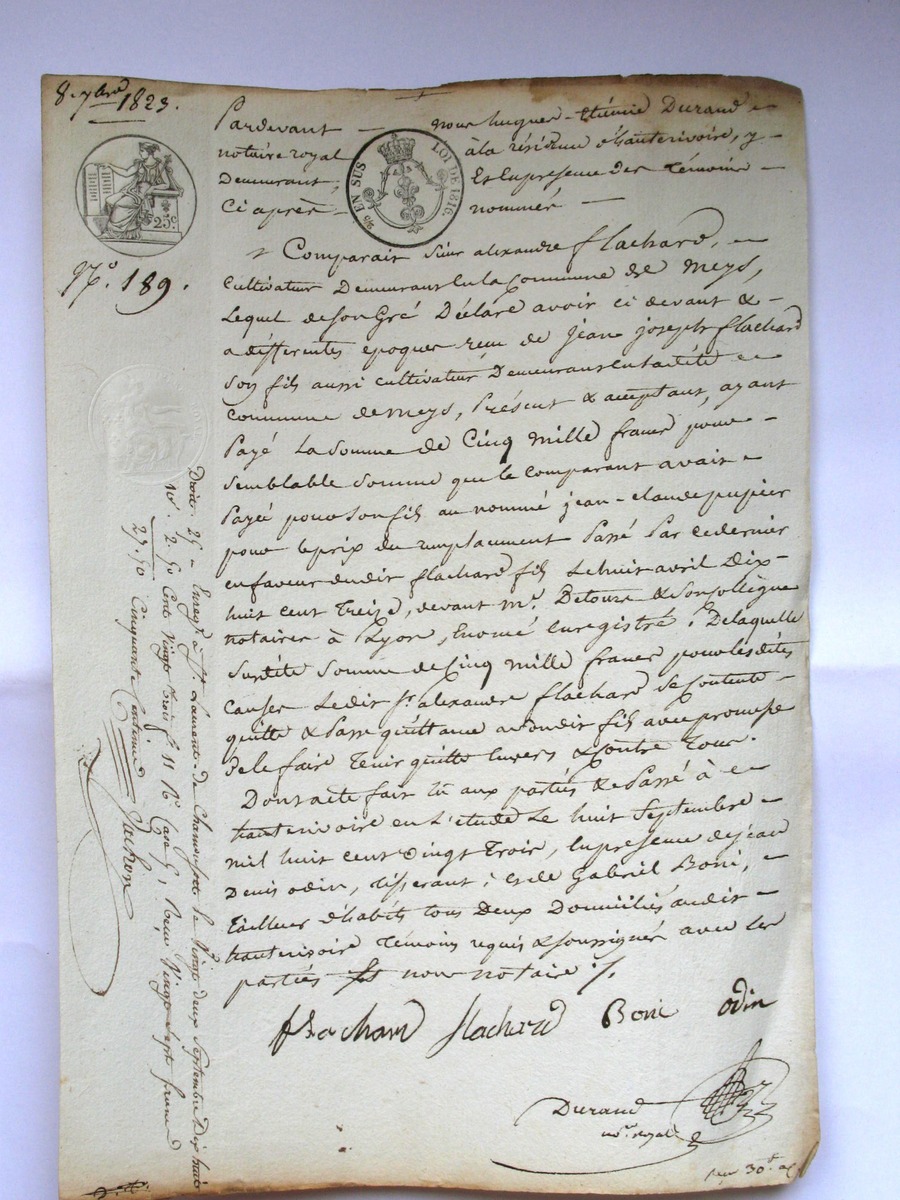 8. 7bre 1823.
25c.
N.o 189.
EN SUS LOI DE 1816.
Pardevant — nous hugues-Etienne Durand
notaire royal à la résidence d'hauterivoire, y
Demeurant, Et En presence des Témoins —
Ci après — nommés —
Comparait Sieur alexandre flachard,
Cultivateur Demeurant En la Commune de meys,
Lequel de Son Gré Déclare avoir ci devant & -
a différentes époques recu de jean joseph flachard
Son fils aussi cultivateur Demeurant En ladite
Commune de meys, Présent & acceptant, ayant
Payé La Somme de Cinq mille francs pour -
Semblable Somme que le Comparant avait
Payée pour Son fils au nommé jean-claude pupier
pour le prix du remplacement Passé Par ce dernier
en faveur dudit flachard fils Le huit avril Dix-
huit cent Treize, devant Me. Detours & Son Collègue
notaires à Lyon, Enregistré; De laquelle
Susdite Somme de Cinq mille francs pour les dites
Causes Ledit Sr. alexandre flachard Se Contente -
quitte & Passe quittance audit fils avec promesse
de le faire Tenir quitte Envers & Contre Tous.
Dont acte fait lû aux parties & Passé à
hauterivoire en L'étude Le huit Septembre
mil huit cent vingt Trois, En presence de jean
Denis odin, Tisserant; & de Gabriel Boni,
Tailleur d'habits tous Deux Domiciliés audit -
hauterivoire Témoins requis & Soussignés avec les
parties Et nous notaire ./.
flachard flachard Boni odin
Durand
nore. royal
Droit. 25 — Enregé. à St. Laurent de Chamousset le Vingt deux Septembre Dix huit
10e. 2. 50 Cent Vingt Trois f. 11 Ro. Case 5, Reçu Vingt Sept francs
27. 50 Cinquante Centimes